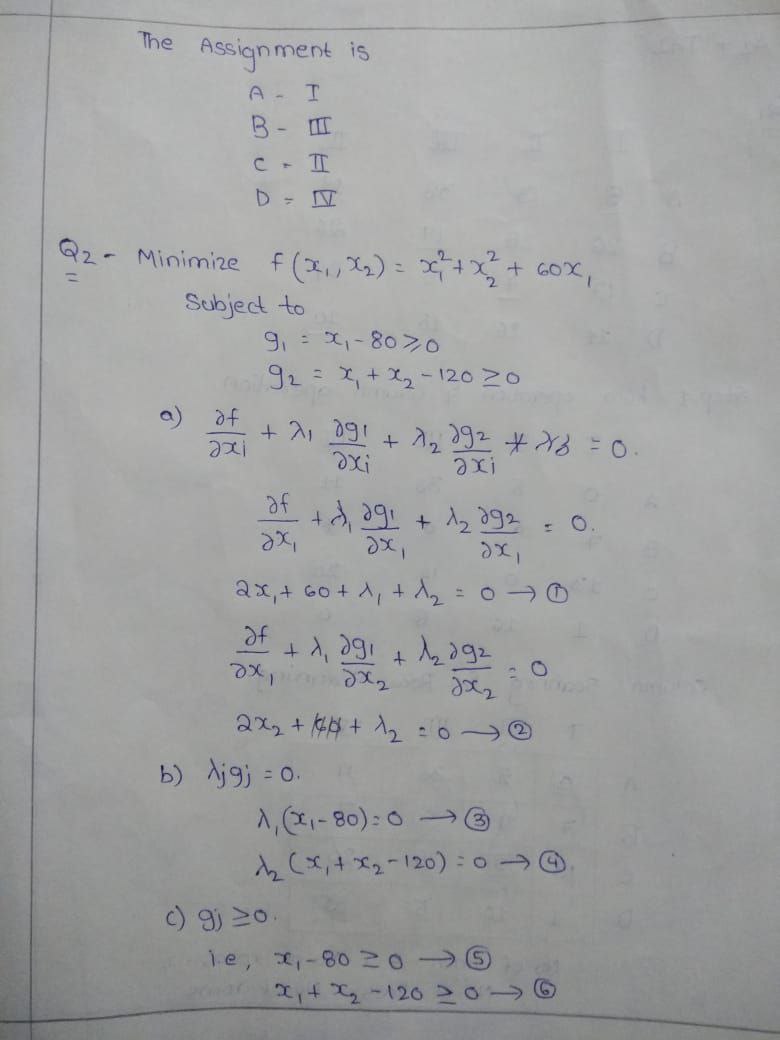 The Assignment is
A - I
B - III
C - II
D - IV
Q2 - Minimize f(x₁, x₂) = x₁² + x₂² + 60x₁
Subject to
g₁ = x₁ - 80 ≥ 0
g₂ = x₁ + x₂ - 120 ≥ 0
a) ∂f/∂xi + λ₁ ∂g₁/∂xi + λ₂ ∂g₂/∂xi = 0.
∂f/∂x₁ + λ₁ ∂g₁/∂x₁ + λ₂ ∂g₂/∂x₁ = 0.
2x₁ + 60 + λ₁ + λ₂ = 0 → ①
∂f/∂x₁ + λ₁ ∂g₁/∂x₂ + λ₂ ∂g₂/∂x₂ = 0
2x₂ + λ₂ = 0 → ②
b) λjgj = 0.
λ₁(x₁ - 80) = 0 → ③
λ₂(x₁ + x₂ - 120) = 0 → ④
c) gj ≥ 0.
i.e, x₁ - 80 ≥ 0 → ⑤
x₁ + x₂ - 120 ≥ 0 → ⑥